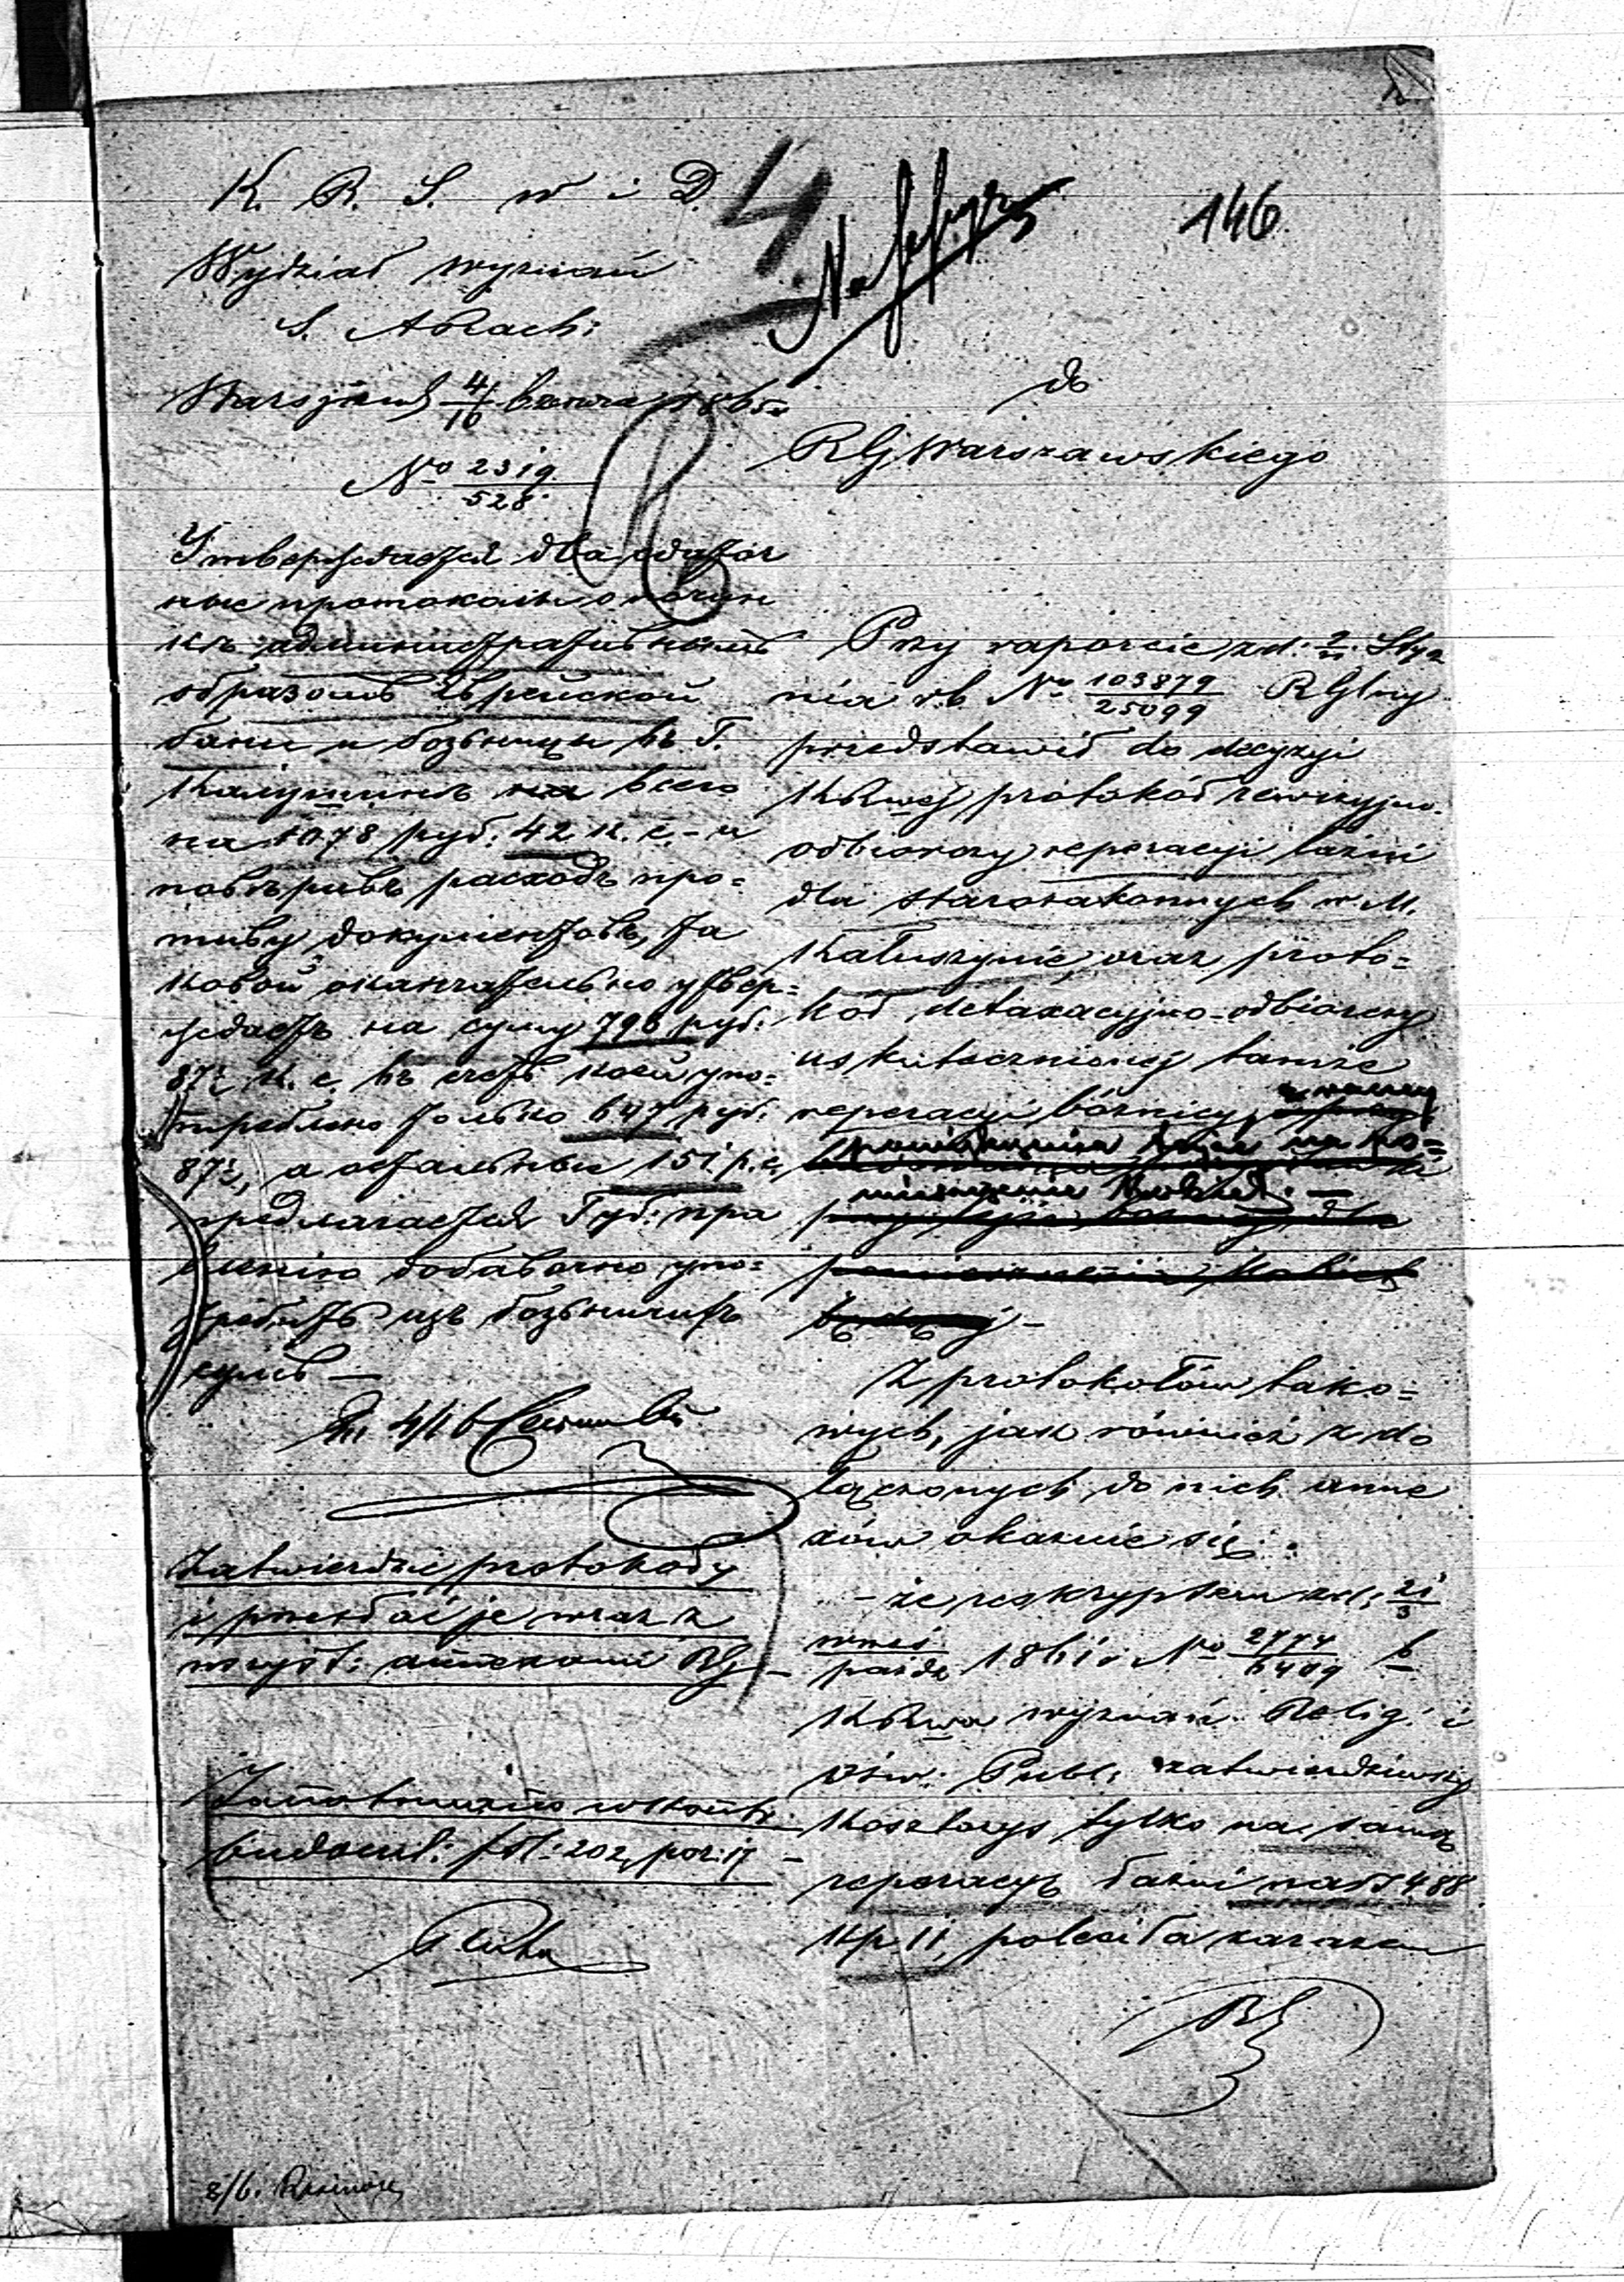 146
4
K. R. S. W i D.
Wydział wyznań
S.
Warszawa d 4/16 Czerwca 1865
No 2319/528
Утверждается два
ные протоколы о починк
къ административнымъ
образомъ Еврейской
бани и бозьницы въ Г.
Калушинъ всего
на 1078 руб. 42 к. с. – и
повѣривъ расходъ про=
тиву документовъ, та
ковой окончательно утвер=
ждаетъ на сумму 798 руб:
87½ к. с. въ счетъ коей упо=
треблено только 647 руб.
87½, а остальные 151 р. с.
предлагается Губ: пра
вленію добавочно упо=
требить изъ бозьничныхъ
суммъ —
4/16
Zatwierdzić protokoły
i przesłać je wraz z
wszyst: annexami RG –
Zanotowano w kontr:
budowl: fol: 202, poz: 17 –
do
RGWarszawskiego
Przy raporcie z d. 2/ Stycz
nia r.b. No 103879/25099 RGlny
przedstawił do decyzyi
KRwej protokół rewizyjno-
odbiorczy reperacyi łaźni
dla starozakonnych w M.
Kałuszynie, oraz proto=
kół detaxacyjno-odbiorczy
uskutecznionej tamże
reperacyi bóżnicy,
Z protokołów tako=
wych, jak również z do
łączonych do nich anne
xów okazuje się:
– że reskryptem z d. 21/3
wrześ/paźdz 1861 r. No 2774/6409 b
KRwa wyznań Relig. i
Ośw: Publ: zatwierdziwszy
kosztorys tylko na samą
reperacyę łaźni na rs 488
kp 11, poleciła zarazem